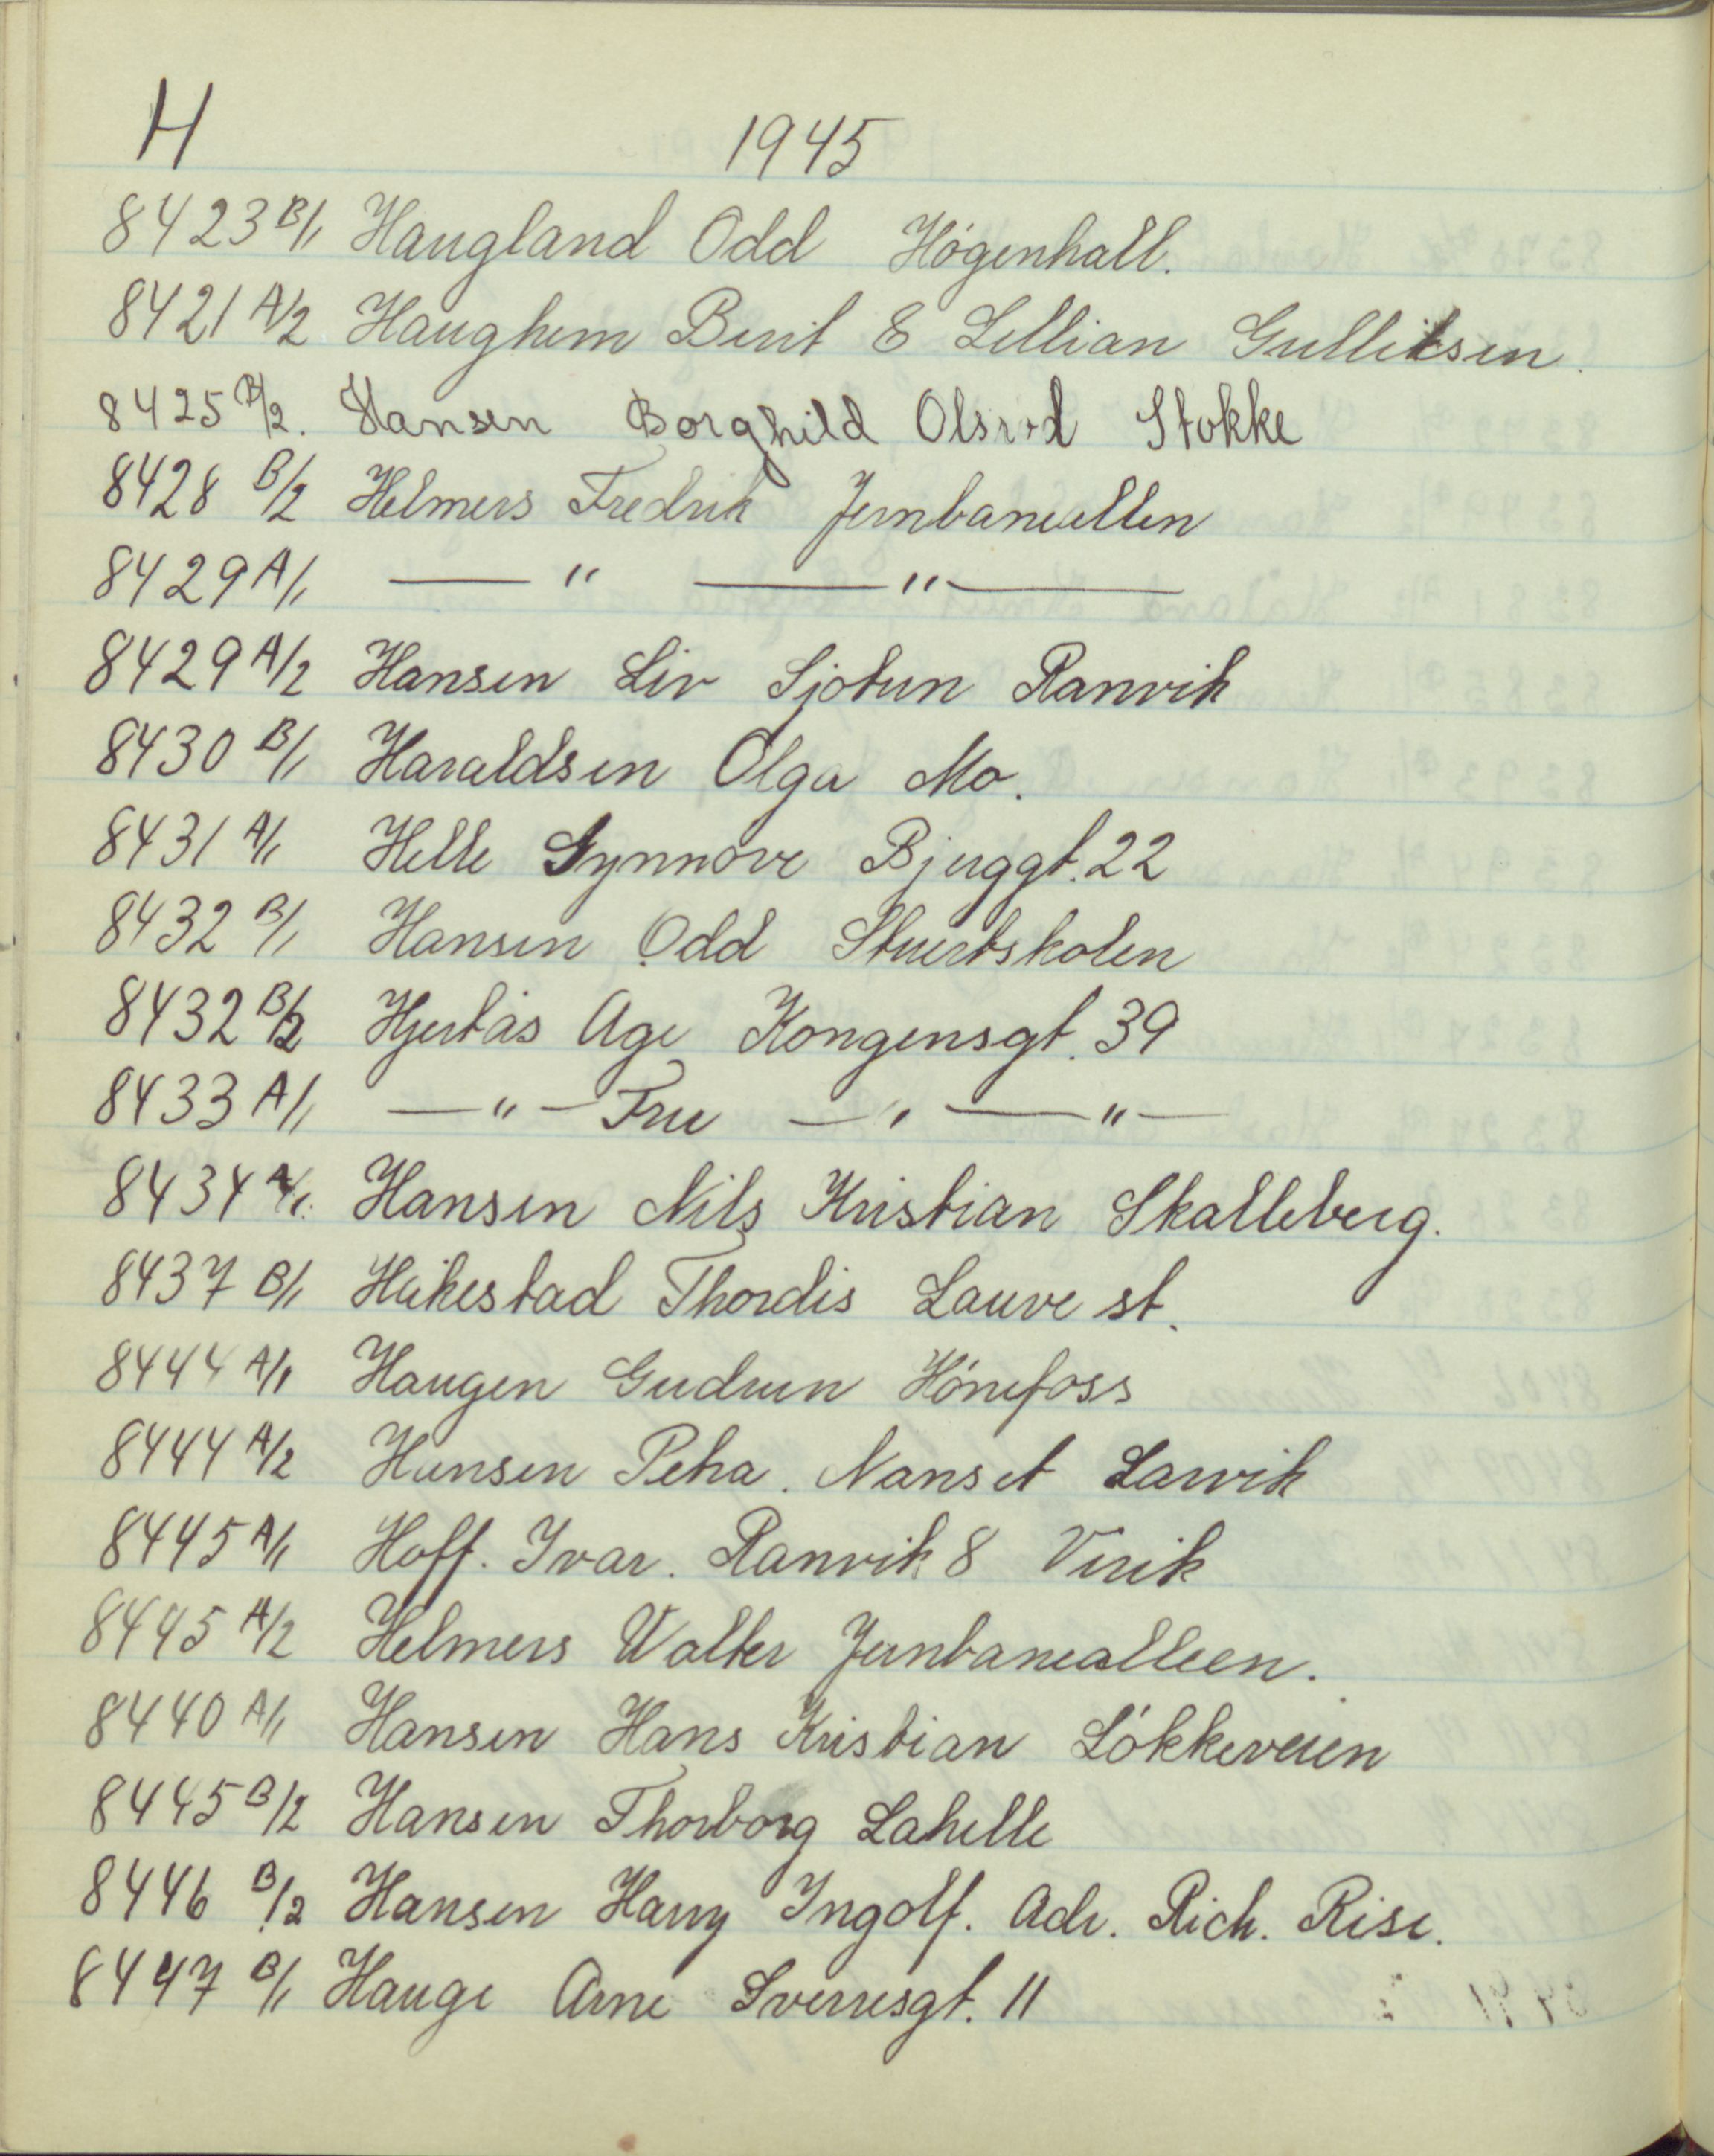 H 1945
8423 B/1 Haugland Odd Högenhall.
8421 A/2 Haughem Berit & Lillian Gulliksen.
8425 B/2. Hansen Borghild Olsrød Stokke
8428 B/2 Helmers Fredrik Jernbanealleen
8429 A/1 — " — " —
8429 A/2 Hansen Liv Sjøtun Ranvik
8430 B/1 Haraldsen Olga Mo.
8431 A/1 Helle Synnøve Bjuggt. 22
8432 B/1 Hansen Odd Stuertskolen
8432 B/2 Hjertås Åge Kongensgt. 39
8433 A/1 — " — Fru — " — " —
8434 A/1. Hansen Nils Kristian Skalleberg.
8437 B/1 Håkestad Thordis Lauve st.
8444 A/1 Haugen Gudrun Hönefoss
8444 A/2 Hansen Petra. Nanset Larvik
8445 A/1 Hoff. Ivar. Ranvik 8 Virik
8445 A/2 Helmers Walter Jernbanealleen.
8440 A/1 Hansen Hans Kristian Lökkeveien
8445 B/2 Hansen Thorborg Lahelle
8446 B/2 Hansen Harry Ingolf. Adr. Rich. Rise.
8447 B/1 Hauge Arne Sverresgt. 11